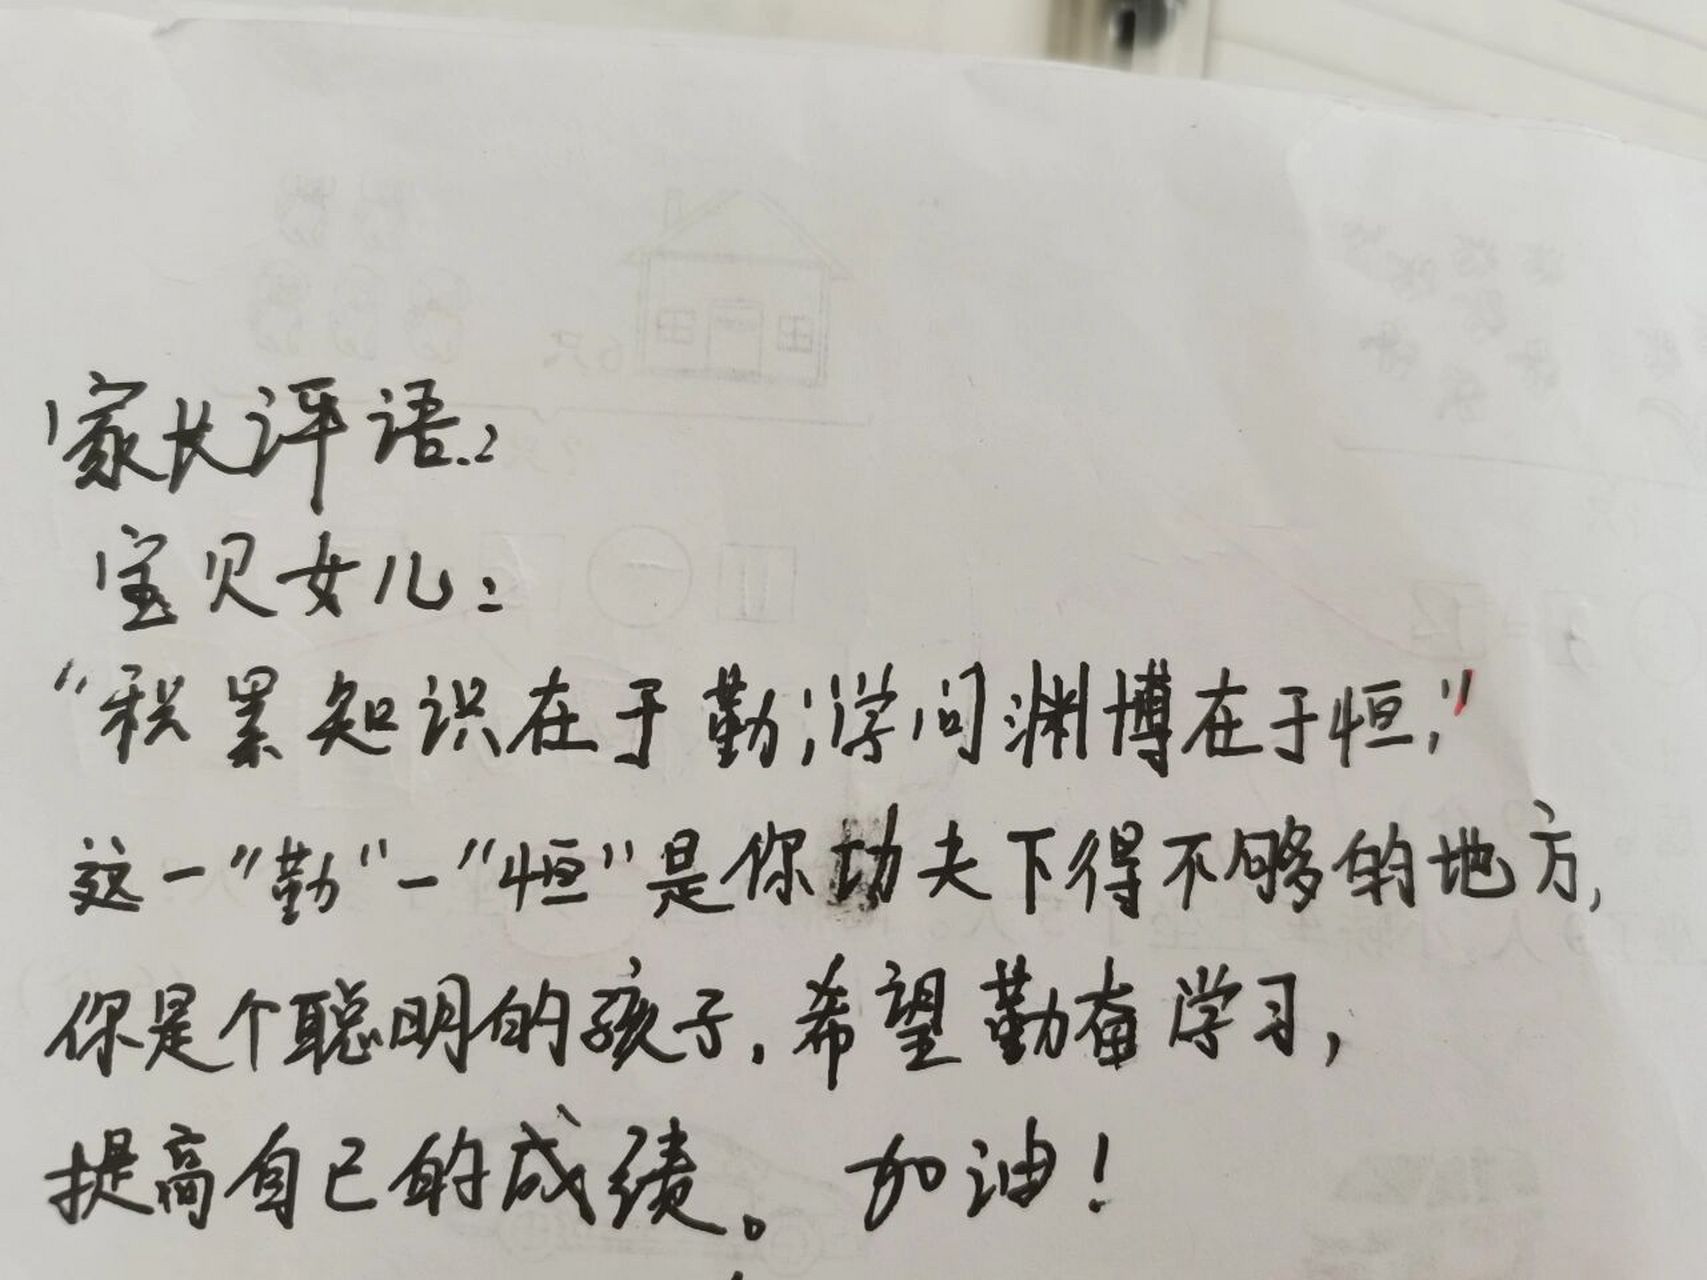 家长评语：
宝贝女儿：
“积累知识在于勤；学问渊博在于恒，”
这一“勤”一“恒”是你功夫下得不够的地方，
你是个聪明的孩子，希望勤奋学习，
提高自己的成绩。 加油！